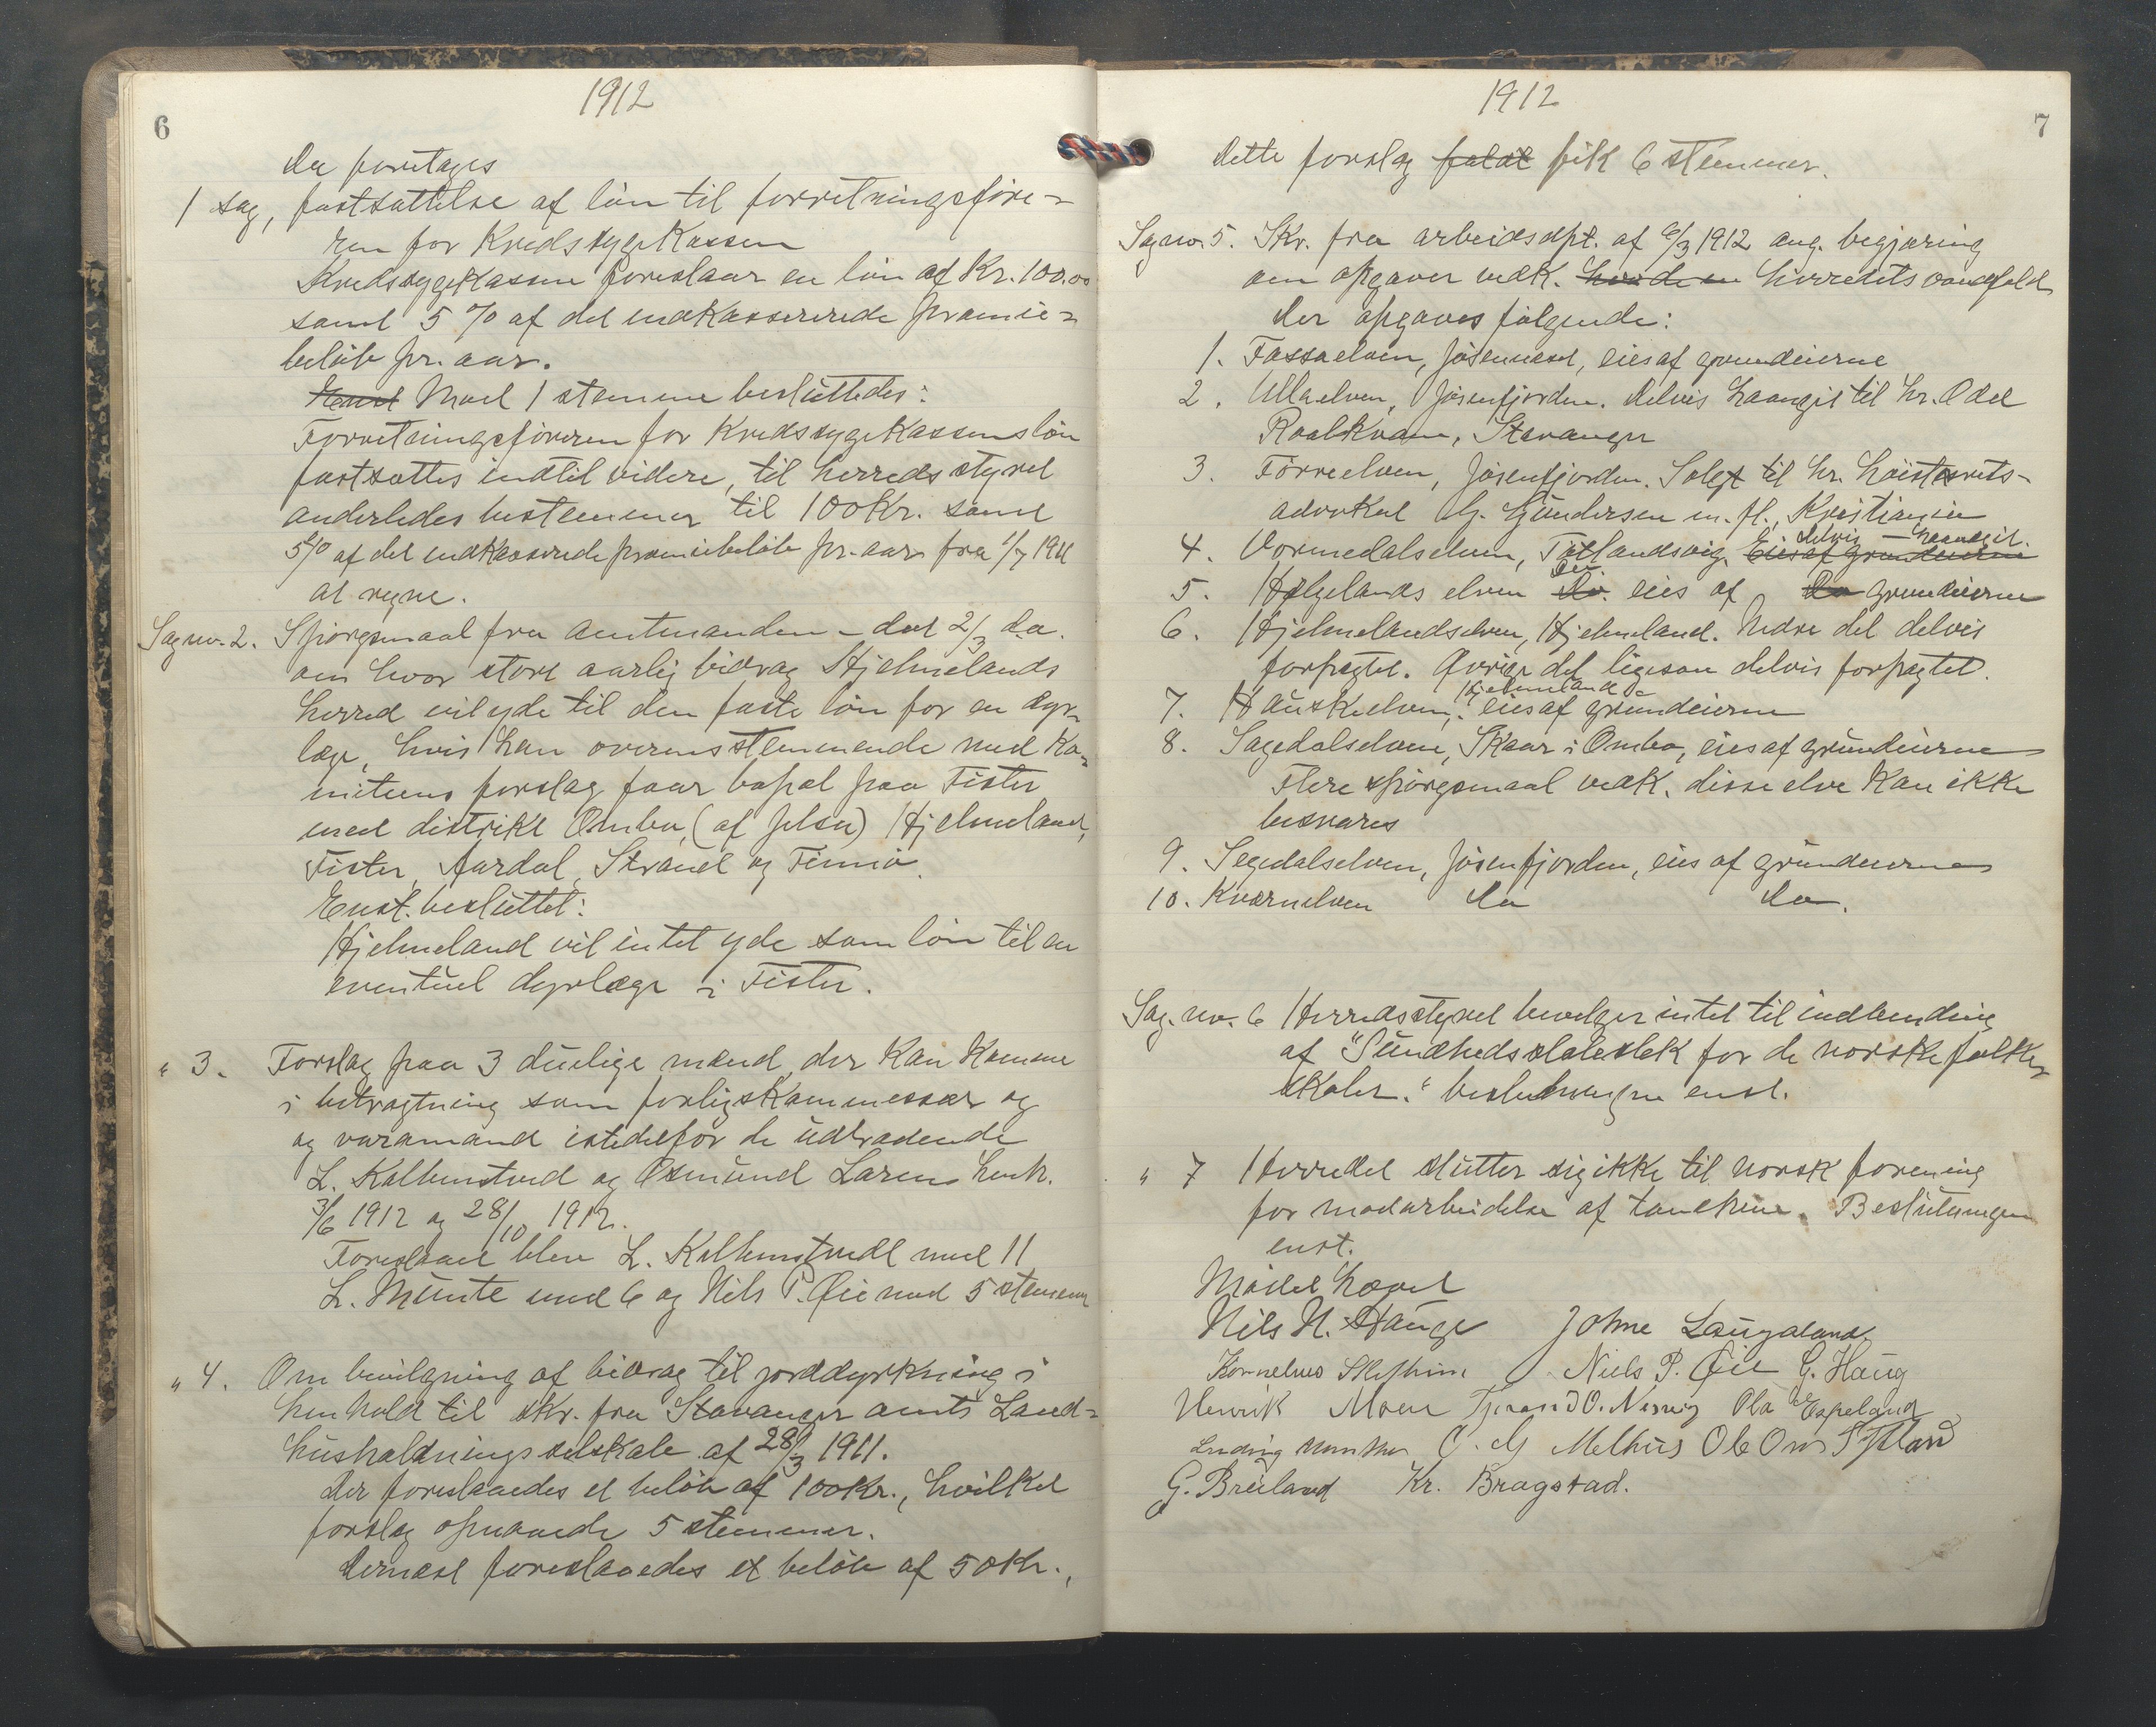 6
1912
Der foretages
1 sag, fastsættelse af løn til forretningsføre-
ren for Kredssygekassen
Kredssygekassen foreslaar en løn af Kr. 100.00
samt 5 % af det indkasserede præmie-
beløb pr. aar.
Enst Mod 1 stemme besluttedes:
Forretningsføreren for Kredssygekassens løn
fastsættes indtil videre, til herredsstyret
anderledes bestemmer til 100 Kr. samt
5 % af det indkasserede præmiebeløb pr. aar fra 1/7 1911
at regne.
Sag no. 2. Spørgsmaal fra Amtmanden - dat 2/3 d.a.
om hvor stort aarlig bidrag Hjelmelands
herred vil yde til den faste løn for en dyr-
læge, hvis han overensstemmende med Ko-
miteens forslag faar bopæl paa Fister
med distrikt Ombo, (af Jelsa) Hjelmeland,
Fister, Aardal, Strand og Finnø.
Enst. besluttet:
Hjelmeland vil intet yde som løn til en
eventuel dyrlæge i Fister.
" 3. Forslag paa 3 duelige mænd, der kan komme
i betragtning som forligskommessær og
og varamand istedetfor de udtrædende
L. Kolbenstvedt og Osmund Larsen henh.
3/6 1912 og 28/10 1912.
Foreslaaet blev L. Kolbenstvedt med 11
L. Munte med 6 og Nils P. Øie med 5 stemmer
" 4. Om bevilgning af bidrag til jorddyrkning i
henhold til skr. fra Stavanger amts Land-
husholdningsselskab af 28/3 1911.
Der foreslaaedes et beløb af 100 Kr., hvilket
forslag opnaaede 5 stemmer.
Dernæst foreslaaedes et beløb af 50 Kr.,
1912
7
Dette forslag faldt fik 6 stemmer.
Sag no. 5. Skr. fra arbeidsdpt. af 6/3 1912 ang. begjæring
om opgaver vedk. herredets vandfald
Der opgaves følgende:
1. Fossaelven, Jøsenneset, eies af grundeierne
2. Ullaelven, Jøsenfjorden. Delvis haangit til hr. Odd
Raalkvam, Stavanger
3. Førreelven, Jøsenfjorden. Solgt til hr. høiesterets-
advokat G. Gundersen m. fl., Kristiania
4. Vormedalselven, Tøtlandsvig, Eies af grundeierne delvis haangit.
5. Helgelands elven Do. Der eies af Do grundeierne
6. Hjelmelandselven, Hjelmeland. Nedre del delvis
forpagtet. Øvrige del ligesaa delvis forpagtet.
7. Hauskeelven, Hjelmeland eies af grundeierne
8. Sagedalselven, Skaar i Ombo, eies af grundeierne
Flere spørgsmaal vedk. disse elve kan ikke
besvares
9. Segedalselven, Jøsenfjorden, eies af grundeierne
10. Kvernelven Do Do.
Sag. no. 6 Herredsstyret bevilger intet til indbinding
af "Sundhedsstatistik for de norske folke-
skoler." beslutningen enst.
" 7 Herredet slutter sig ikke til norsk forening
for modarbeidelse af tandkrie. Beslutningen
enst.
Mødet hævet
Nils N. Hauge Johne Laugaland
Kornelius Steffuine Niels P. Øie G. Haug
Henrik Moen Tjerand O. Nesvig Ola Espeland
Ludvig Munthe O. G Melhus Ole Oms Sytland
G. Breiland Kr. Bragstad.